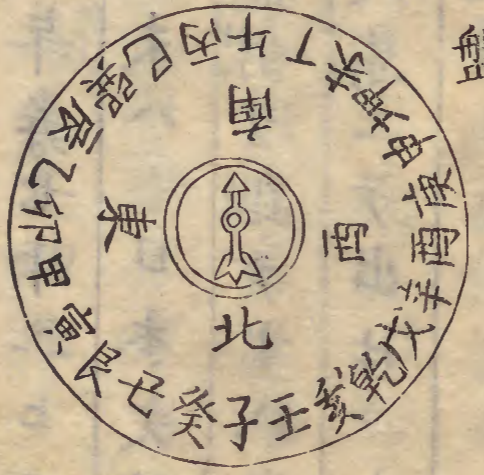 子癸丑艮寅甲卯乙辰巽巳丙午丁未坤申庚酉辛戌乾亥壬
南
東
西
北